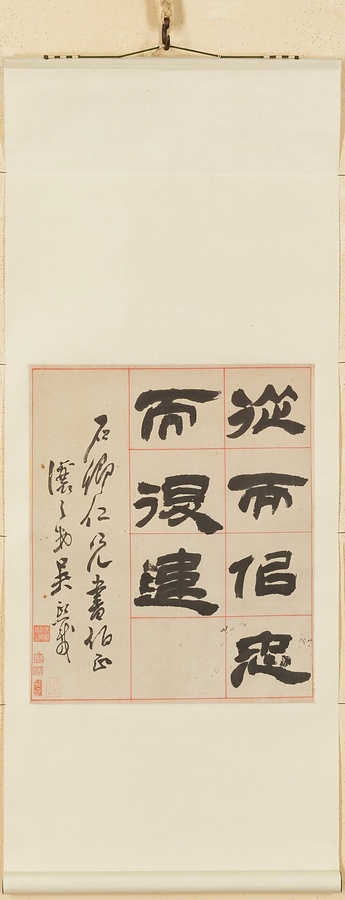 從而佀忠
而復建
石卿仁兄書伯正
讓之弟吳熙載